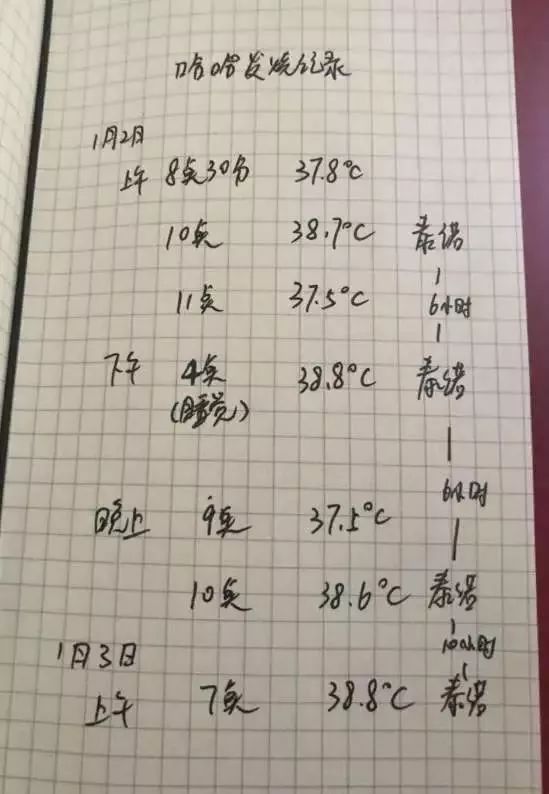 哈哈发烧记录
1月2日
上午 8点30分 37.8°C
10点 38.7°C 泰诺
11点 37.5°C 6小时
下午 4点 38.8°C 泰诺
(睡觉)
6小时
晚上 9点 37.5°C
10点 38.6°C 泰诺
10小时
1月3日
上午 7点 38.8°C 泰诺